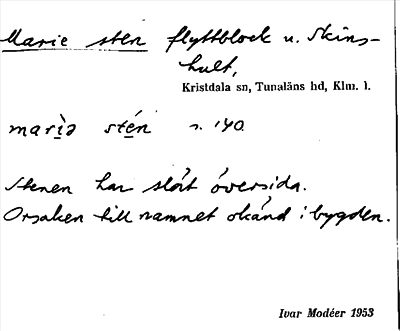 Marie sten flyttblock u. Skins-
hult,
Kristdala sn, Tunaläns hd, Klm. l.
marìə stén s. 140
Stenen har slät översida.
Orsaken till namnet okänd i bygden.
Ivar Modéer 1953